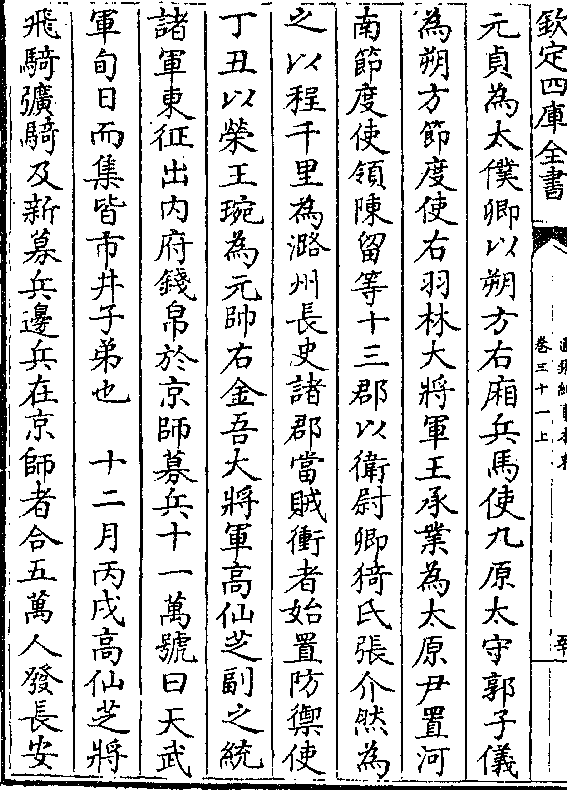 欽定四庫全書
卷三十一上
元貞為太僕卿以朔方右廂兵馬使九原太守郭子儀
為朔方節度使右羽林大將軍王承業為太原尹置河
南節度使領陳留等十三郡以衛尉卿猗氏張介然為
之以程千里為潞州長史諸郡當賊衝者始置防禦使
丁丑以榮王琬為元帥右金吾大將軍高仙芝副之統
諸軍東征出內府錢帛於京師募兵十一萬號曰天武
軍旬日而集皆市井子弟也　十二月丙戌高仙芝將
飛騎彍騎及新募兵邊兵在京師者合五萬人發長安